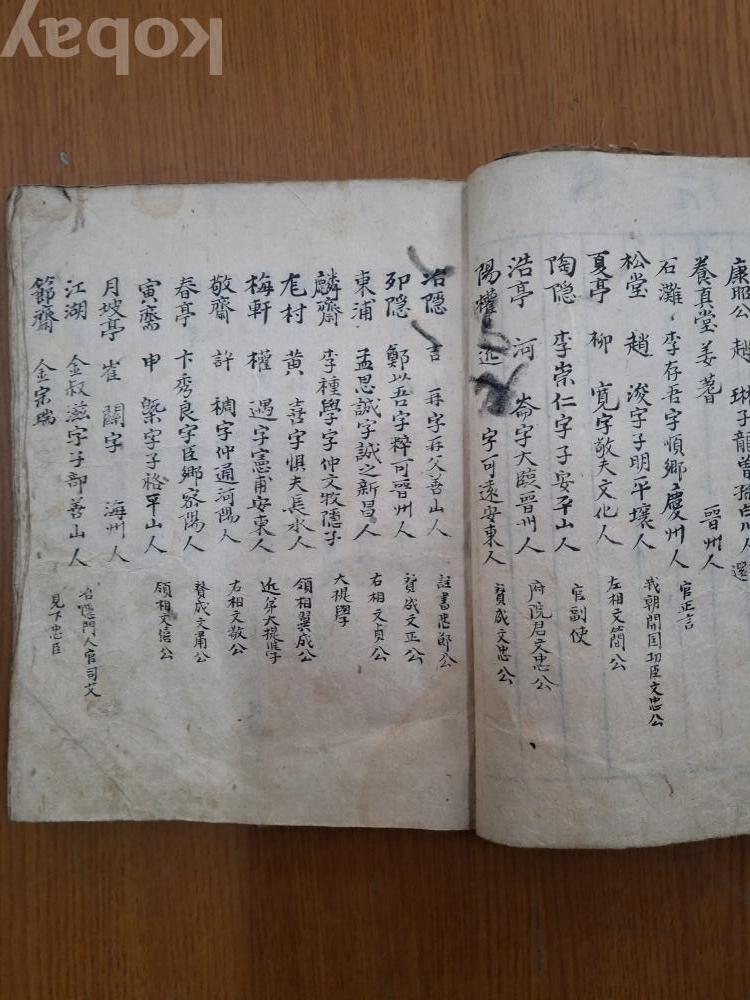 kobay
康昭公 趙 琳子龍曾孫白川人 還
養真堂姜蓍 晉州人
石灘 李存吾字順鄉慶州人 官正言
松堂 趙 浚字子明平壤人 我朝開国功臣文忠公
夏亭 柳 寬字敬夫文化人 左相文簡公
陶隐 李崇仁字子安平山人 官副使
浩亭 河 崙字大臨晉州人 府院君文忠公
陽 權 近 字可遠安東人 贊成文忠公
冶隠 吉 再字再父善山人 註書
郊隠 鄭以吾字粹可晉州人 贊成文正公
東浦 孟思誠字誠之新昌人 右相文貞公
麟齋 李種學字仲文牧隱子 大提學
厖村 黄 喜字惧夫長水人 領相翼成公
梅軒 權 遇字憲甫安東人 近弟大提學
敬齋 許 稠字仲通河陽人 右相文敬公
春亭 卞秀良字臣鄉密陽人 賛成文肅公
寅齋 申 槩字子格平山人 領相文僖公
月坡亭 崔 閏字 海州人
江湖 金叔滋字子部善山人 冶隱門人官司艾
節齋 金宗瑞 見下忠臣